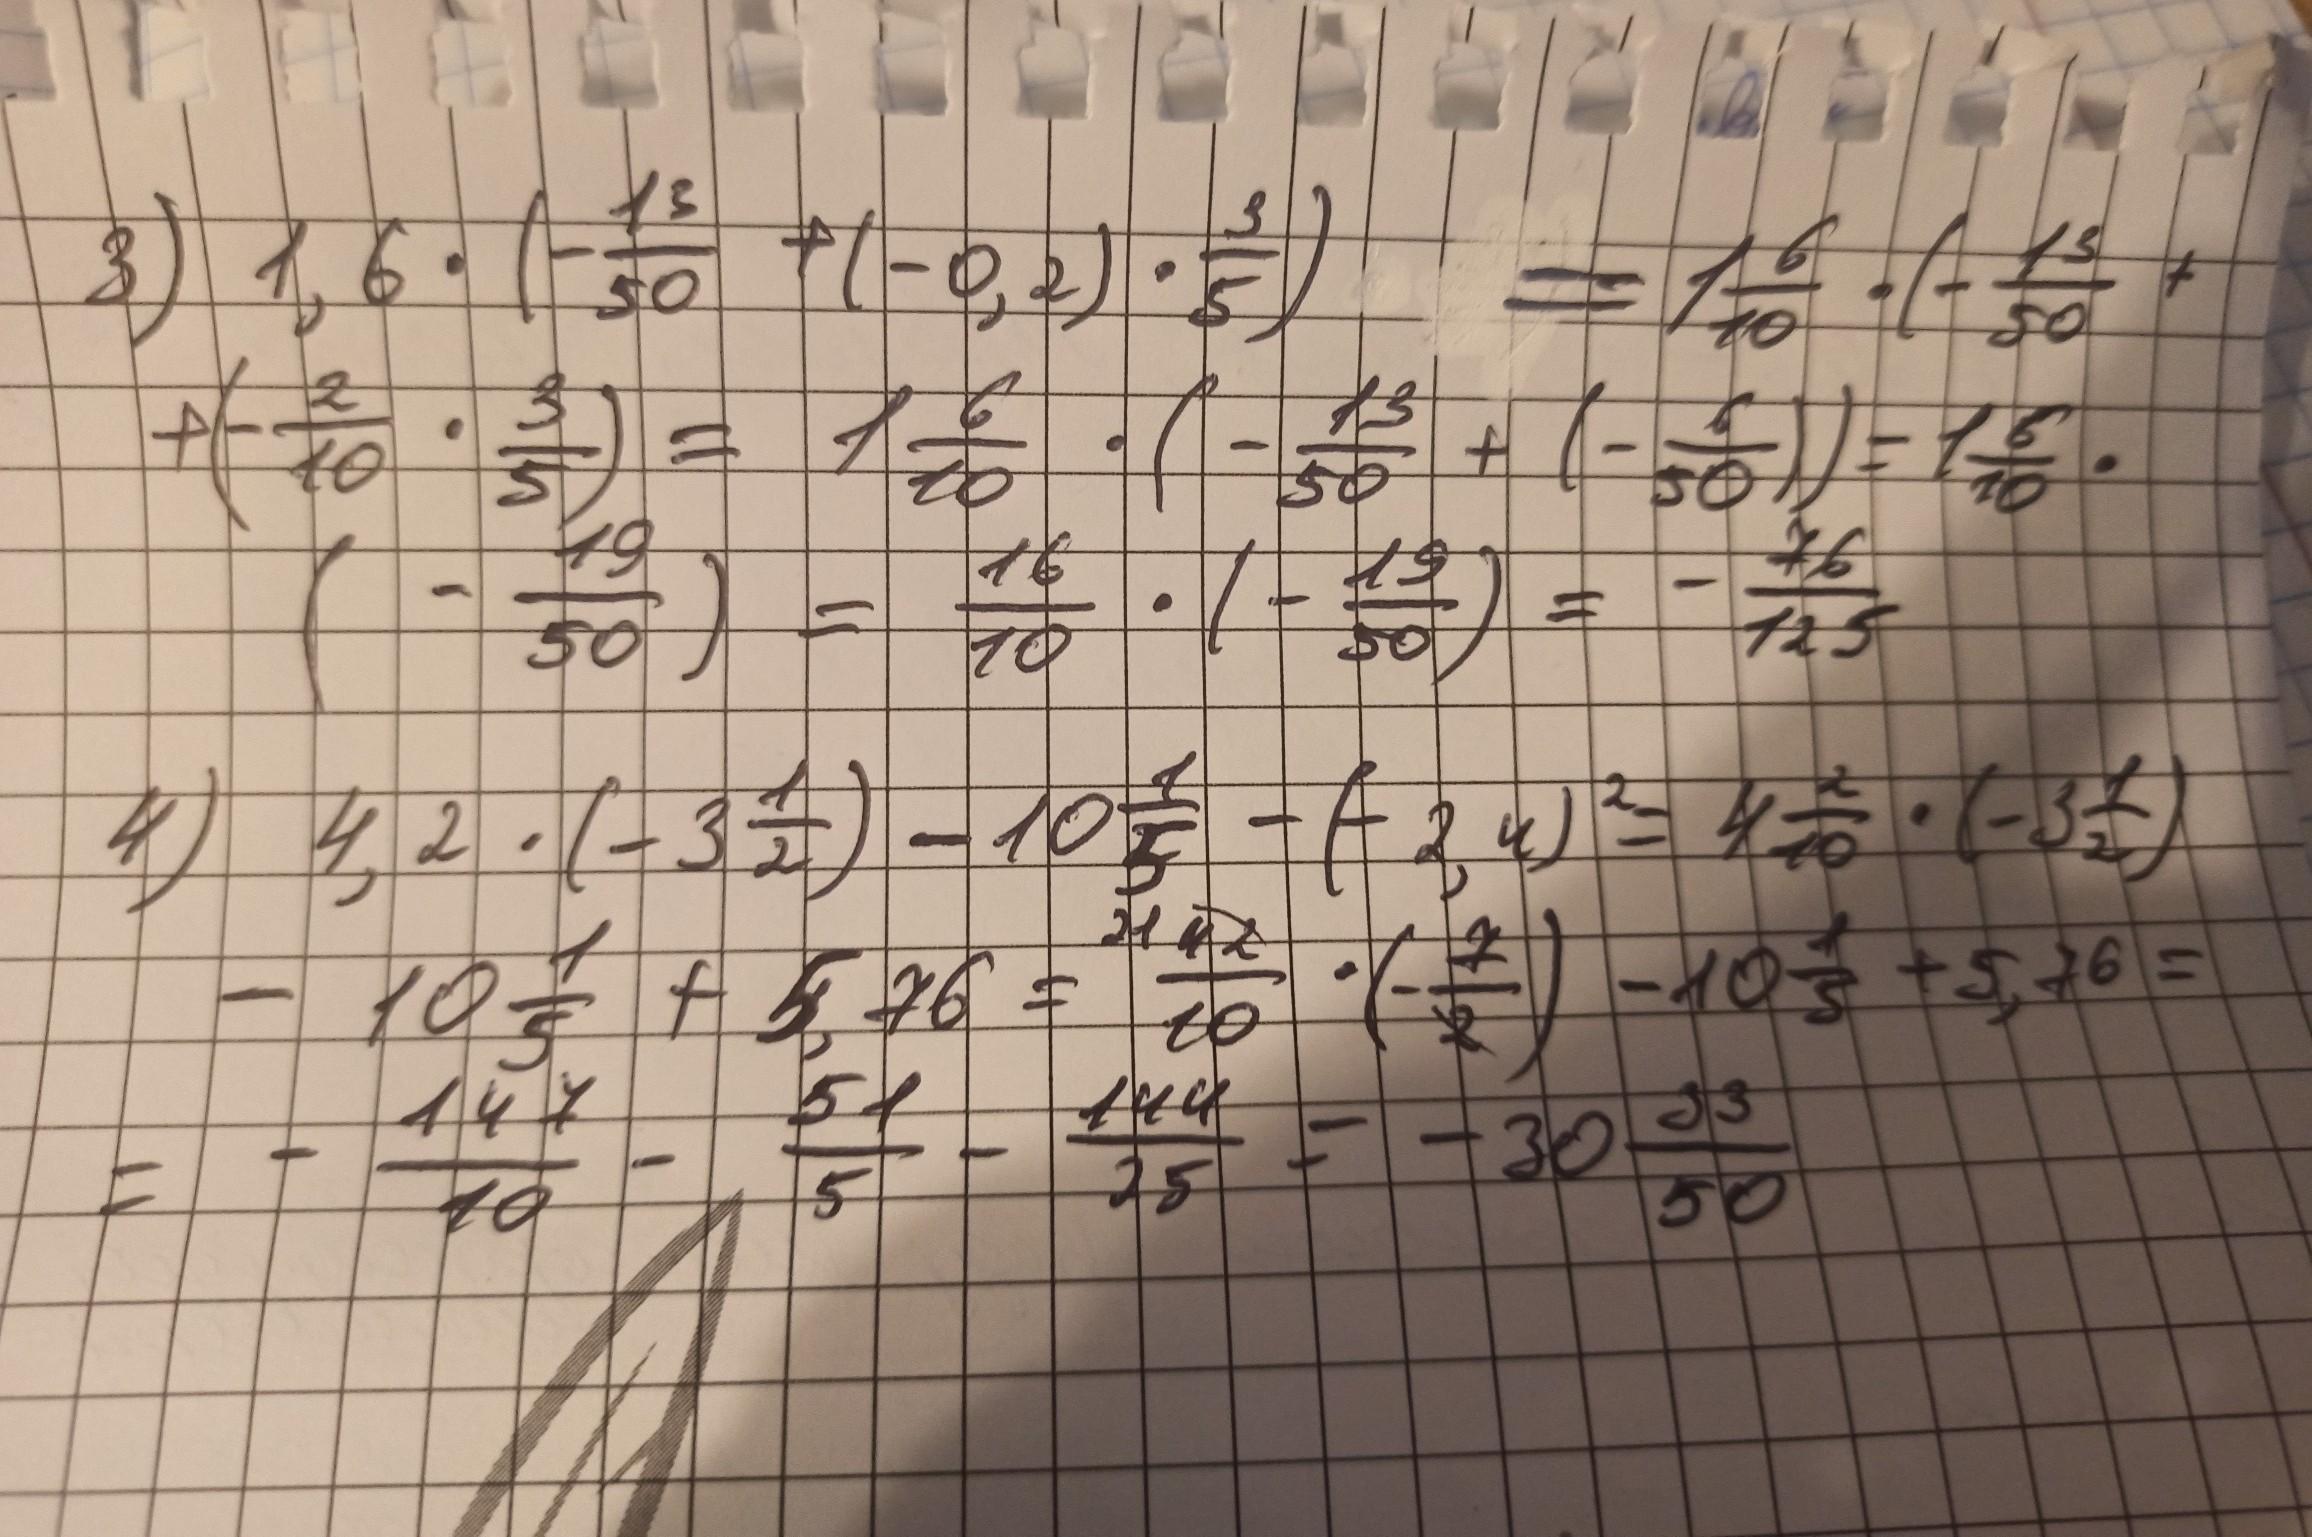 3) 1,6 · (-13/50 + (-0,2) · 3/5) = 1 6/10 · (-13/50 +
+ (-2/10 · 3/5) = 1 6/10 · (-13/50 + (-6/50)) = 1 6/10 ·
(-19/50) = 16/10 · (-19/50) = -76/125
4) 4,2 · (-3 1/2) - 10 1/5 - (-2,4)² = 4 2/10 · (-3 1/2)
- 10 1/5 + 5,76 = 21 42/10 · (-7/2) - 10 1/5 + 5,76 =
= -147/10 - 51/5 - 144/25 = -30 33/50